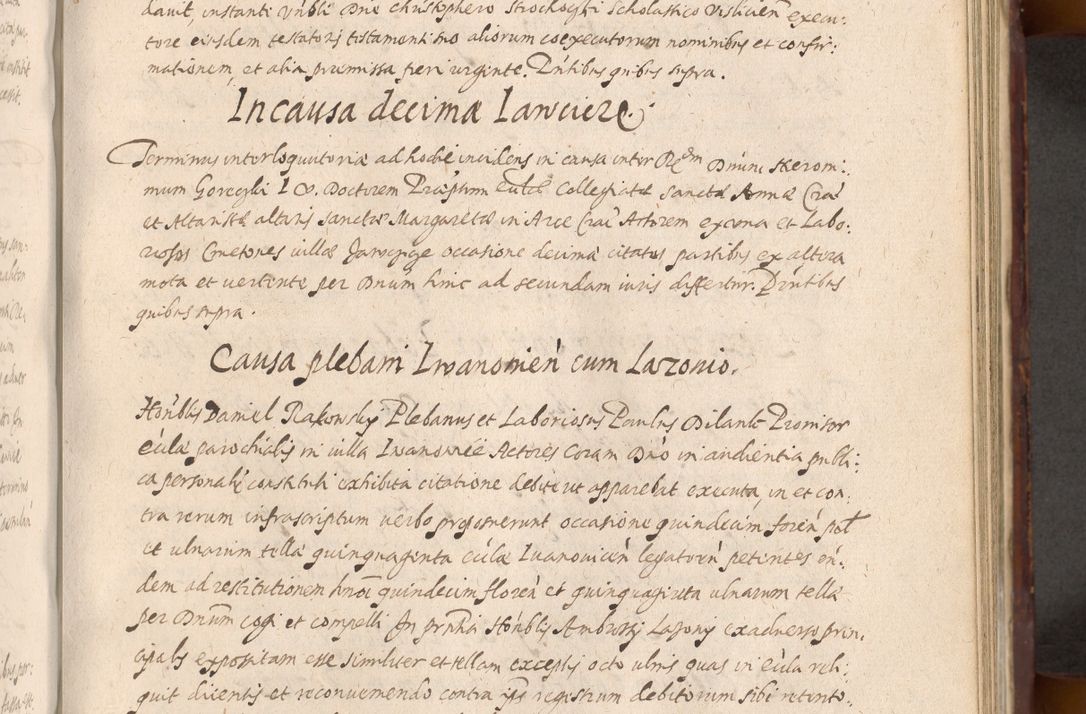 davit, instanti Vnbli Dno Christophero Strochogki scholastico Vislicien execu:
tore eiusdem testatoris testamenti suo aliorum coexecutorum nominibus et confir:
mationem, et alia premissa fieri urgente. Pntibus quibus supra.
In causa decimæ Iawcicze.
Terminus interloquutoriæ ad hodie incidens in causa inter Rdem Dnum Hieroni:
mum Goreczki I V. Doctorem Præptum Eccle Collegiatæ Sanctæ Annæ Crac
et Altaristæ altaris Sanctæ Margaretæ in Arce Crac Actorem ex una et Labo:
riosos Cmetones villæ occasione decimæ citatos partibus ex altera
mota et vertente per Dnum hinc ad secundam iuris differtur. Pntibus
quibus supra.
Causa plebani Iwanowien cum Lazonio.
Honblis Daniel Rakowsky Plebanus et Laboriosus Paulus Dilank Provisor
eccle parochialis in villa Iwanowice Actores Coram Dno in audientia publi:
ca personalr constituti exhibita citatione debite ut apparebat executa, in et con:
tra rerum infrascriptum verbo proposuerunt occasione quindecim floren pol
et ulnarum tellæ quinquaginta ecclæ Iwanovicen legatorum petentes eun:
dem ad restitutionem hmoi quindecim floren et quinquaginta ulnarum tellæ
per Dnum cogi et compelli In prntia Honblis Ambrosij Lazonij ex adverso prin:
cipalis expositam esse similiter et tellam exceptis octo ulnis quas in eccla reli:
quit dicentis et reconveniendo contra ipsos registrum debitorum sibi retento.